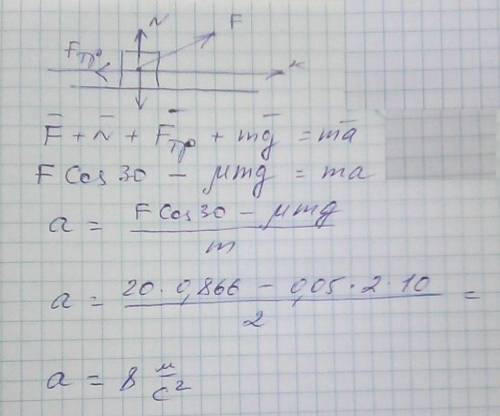 N F
Fтр x
F̅ + N̅ + F̅тр + mg̅ = ma̅
F Cos 30 - μmg = ma
a = (F Cos 30 - μmg) / m
a = (20 · 0,866 - 0,05 · 2 · 10) / 2 =
a = 8 м/с²